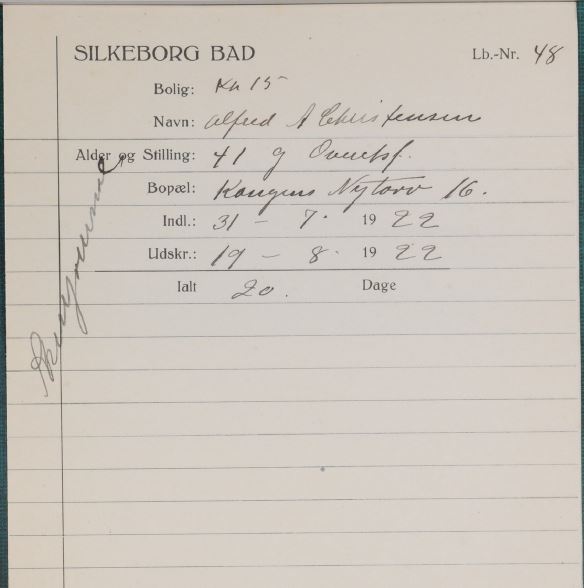 SILKEBORG BAD Lb.-Nr. 48
Bolig: Kh 15
Navn: Alfred A Christensen
Alder og Stilling: 41 g
Bopæl: Kongens Nytorv 16.
Indl.: 31 - 7. 1922
Udskr.: 19 - 8. 1922
Ialt 20. Dage